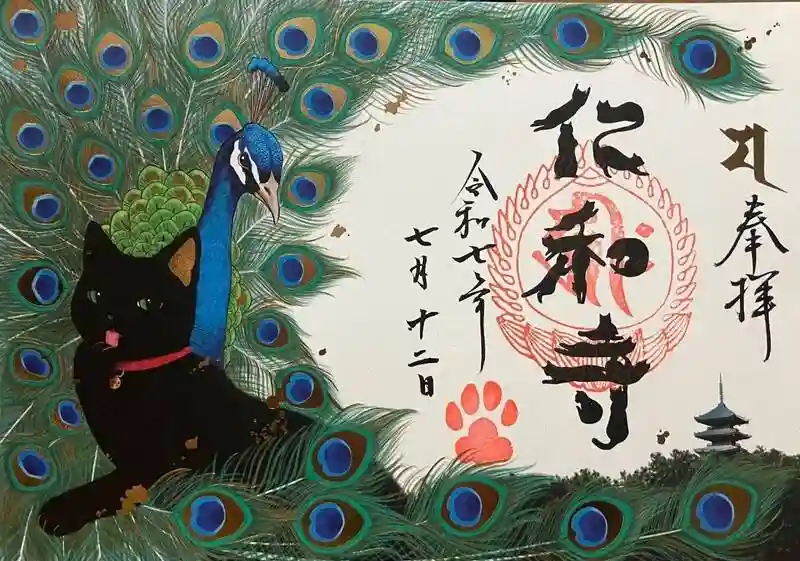 奉拝
仁和寺
令和七年
七月十二日